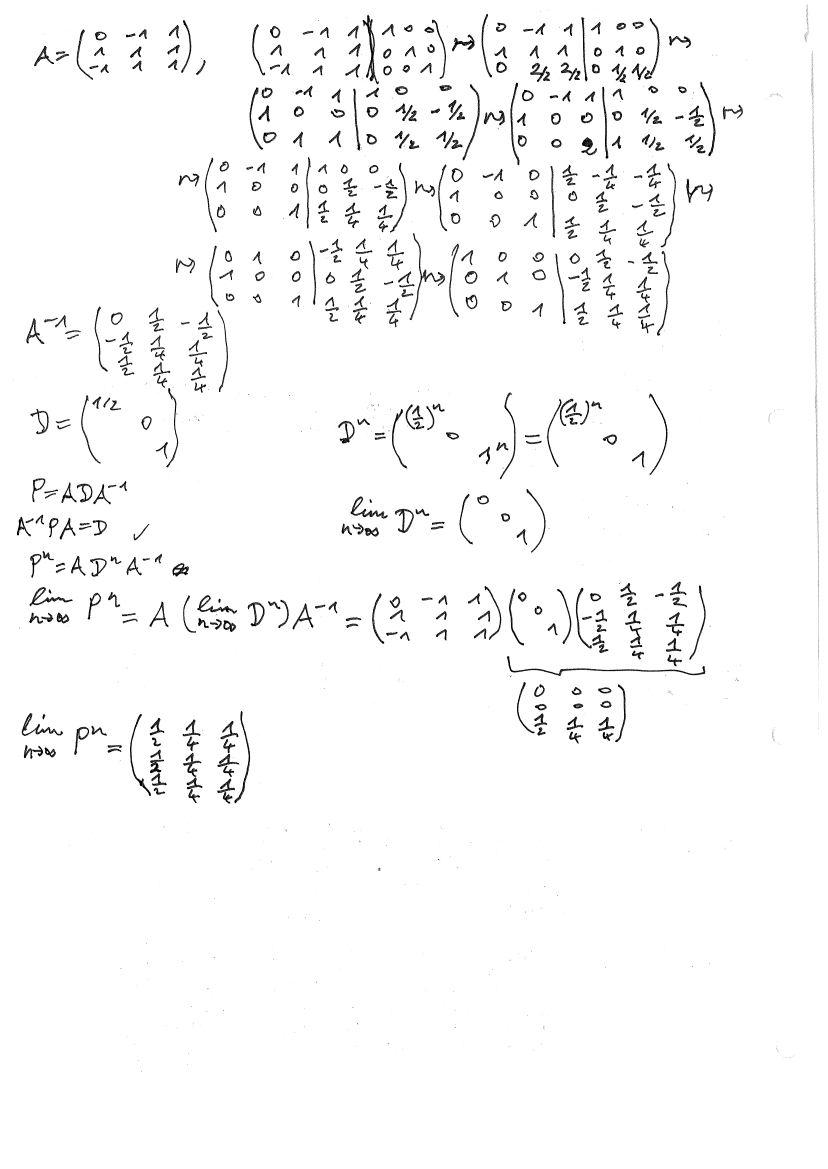 A = (0 -1 1; 1 1 1; -1 1 1), (0 -1 1 | 1 0 0; 1 1 1 | 0 1 0; -1 1 1 | 0 0 1) ⇝ (0 -1 1 | 1 0 0; 1 1 1 | 0 1 0; 0 2/2 2/2 | 0 1/2 1/2) ⇝
(0 -1 1 | 1 0 0; 1 0 0 | 0 1/2 -1/2; 0 1 1 | 0 1/2 1/2) ⇝ (0 -1 1 | 1 0 0; 1 0 0 | 0 1/2 -1/2; 0 0 2 | 1 1/2 1/2) ⇝
⇝ (0 -1 1 | 1 0 0; 1 0 0 | 0 1/2 -1/2; 0 0 1 | 1/2 1/4 1/4) ⇝ (0 -1 0 | 1/2 -1/4 -1/4; 1 0 0 | 0 1/2 -1/2; 0 0 1 | 1/2 1/4 1/4) ⇝
⇝ (0 1 0 | -1/2 1/4 1/4; 1 0 0 | 0 1/2 -1/2; 0 0 1 | 1/2 1/4 1/4) ⇝ (1 0 0 | 0 1/2 -1/2; 0 1 0 | -1/2 1/4 1/4; 0 0 1 | 1/2 1/4 1/4)
A⁻¹ = (0 1/2 -1/2; -1/2 1/4 1/4; 1/2 1/4 1/4)
D = (1/2 0 1) Dⁿ = ((1/2)ⁿ 0 1ⁿ) = ((1/2)ⁿ 0 1)
P = ADA⁻¹
A⁻¹PA = D ✓ lim n→∞ Dⁿ = (0 0 1)
Pⁿ = A Dⁿ A⁻¹
lim n→∞ Pⁿ = A (lim n→∞ Dⁿ) A⁻¹ = (0 -1 1; 1 1 1; -1 1 1) (0 0 1) (0 1/2 -1/2; -1/2 1/4 1/4; 1/2 1/4 1/4)
(0 0 0; 0 0 0; 1/2 1/4 1/4)
lim n→∞ Pⁿ = (1/2 1/4 1/4; 1/2 1/4 1/4; 1/2 1/4 1/4)